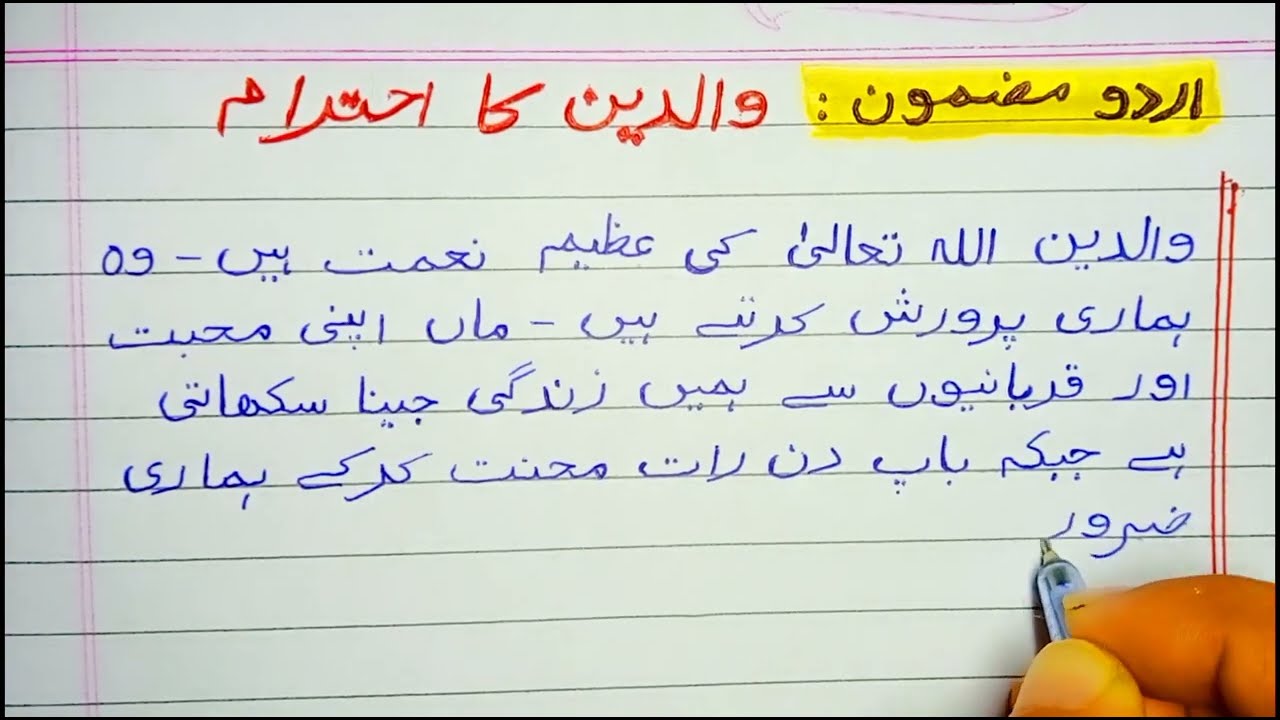 اردو مضمون : والدین کا احترام
والدین اللہ تعالیٰ کی عظیم نعمت ہیں - وہ
ہماری پرورش کرتے ہیں - ماں اپنی محبت
اور قربانیوں سے ہمیں زندگی جینا سکھاتی
ہے جبکہ باپ دن رات محنت کرکے ہماری
ضرور